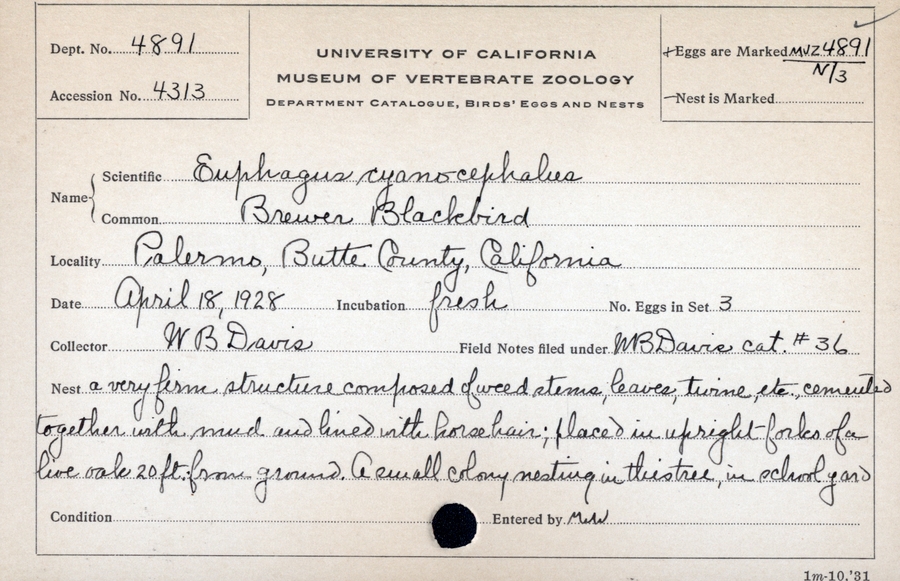 Dept. No. 4891
Accession No. 4313
UNIVERSITY OF CALIFORNIA
MUSEUM OF VERTEBRATE ZOOLOGY
DEPARTMENT CATALOGUE, BIRDS' EGGS AND NESTS
+Eggs are Marked MVZ 4891
N/3
—Nest is Marked
Name { Scientific Euphagus cyanocephalus
Common Brewer Blackbird
Locality Palermo, Butte County, California
Date April 18, 1928 Incubation fresh No. Eggs in Set 3
Collector W B Davis Field Notes filed under WB Davis cat. # 36
Nest a very firm structure composed of weed stems, leaves, twine, etc., cemented
together with mud and lined with horse hair; placed in upright forks of a
live oak 20 ft. from ground. A small colony nesting in this tree, in school yard
Condition Entered by
1m-10,'31